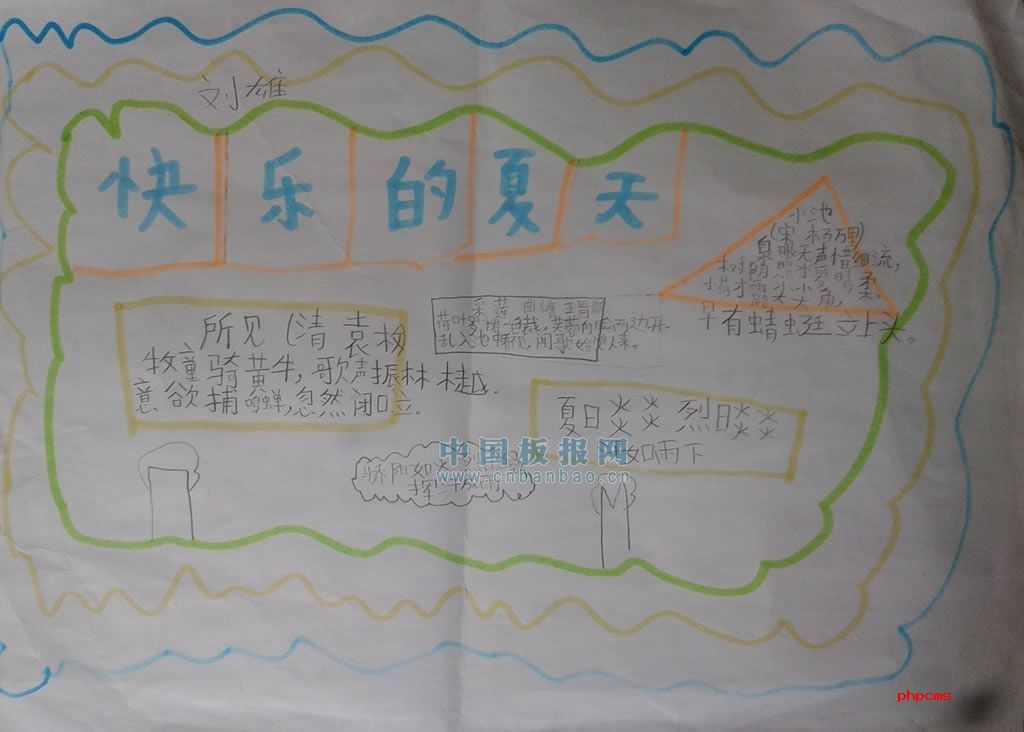 刘雄
快乐的夏天
小池
(宋 杨万里)
泉眼无声惜细流,
树阴照水爱晴柔。
小荷才露尖尖角,
早有蜻蜓立上头。
采莲曲(唐 王昌龄
荷叶罗裙一色裁,芙蓉向脸两边开.
乱入池中看不见,闻歌始觉人来。
所见(清 袁枚
牧童骑黄牛,歌声振林樾.
意欲捕鸣蝉,忽然闭口立.
夏日炎炎 烈日炎炎
如雨下
骄阳如火
挥汗
中国板报网
www.cnbanbao.cn
phpcms